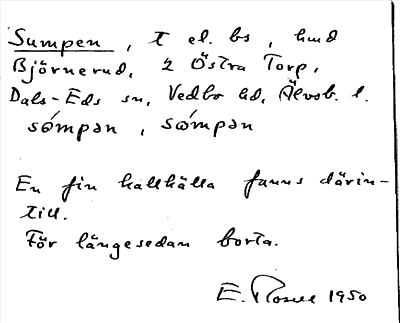 Sumpen, t el. bs, hmd
Björnerud, 2 Östra Torp,
Dals-Eds sn, Vedbo hd, Älvsb. l.
sómpən, sómpən
En fin kallkälla fanns därin-
till.
För längesedan borta.
E. 1950